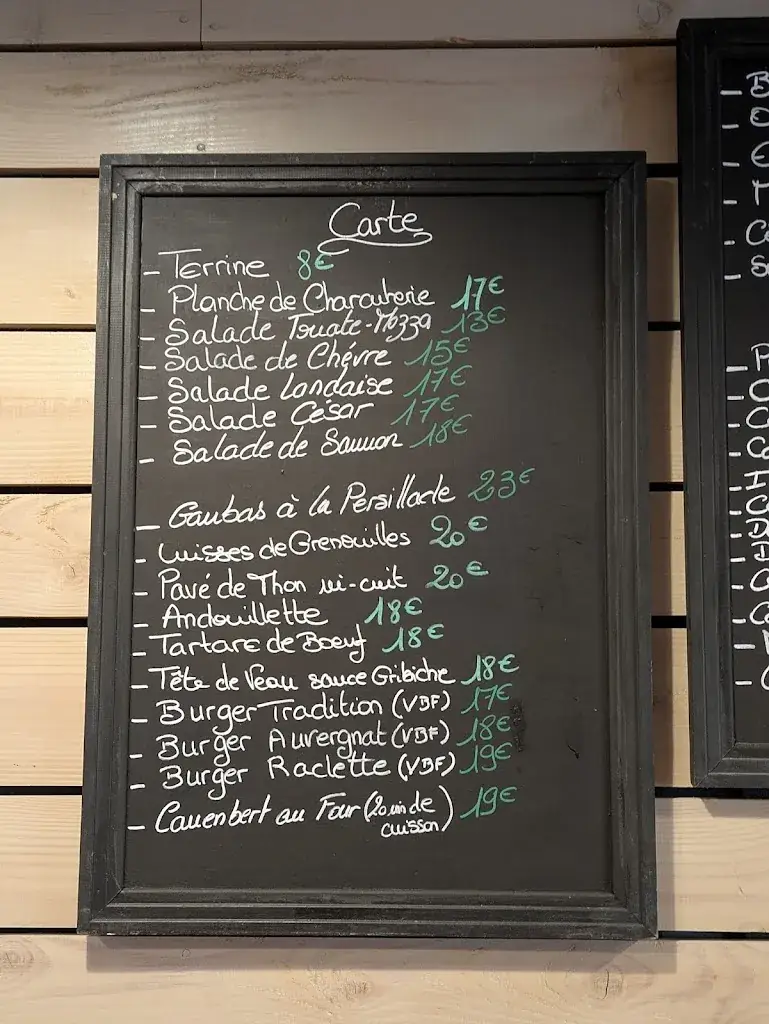 Carte
- Terrine 8€
- Planche de Charcuterie 17€
- Salade Tomate-Mozza 13€
- Salade de Chévre 15€
- Salade Landaise 17€
- Salade César 17€
- Salade de Saumon 18€
- Gambas à la Persillade 23€
- Cuisses de Grenouilles 20€
- Pavé de Thon mi-cuit 20€
- Andouillette 18€
- Tartare de Boeuf 18€
- Tête de Veau sauce Gribiche 18€
- Burger Tradition (VBF) 17€
- Burger Auvergnat (VBF) 18€
- Burger Raclette (VBF) 19€
- Camembert au Four (20 min de cuisson) 19€